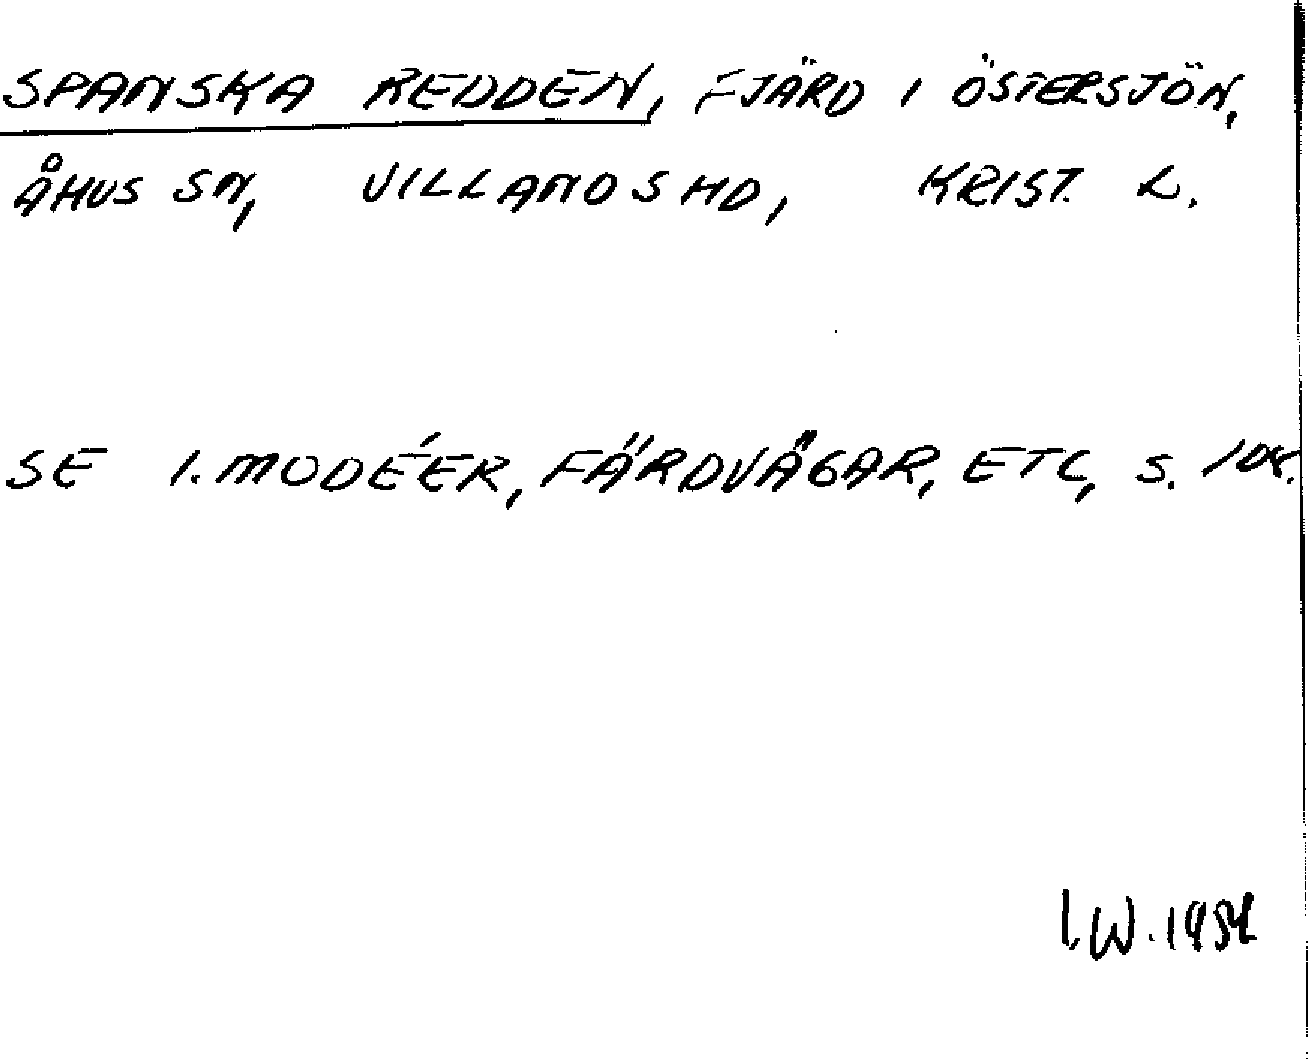 SPANSKA REDDEN, FJÄRD I ÖSTERSJÖN,
ÅHUS SN, VILLANDS HD, KRIST. L.
SE I. MODÉER, FÄRDVÄGAR, ETC, S.
I.W.